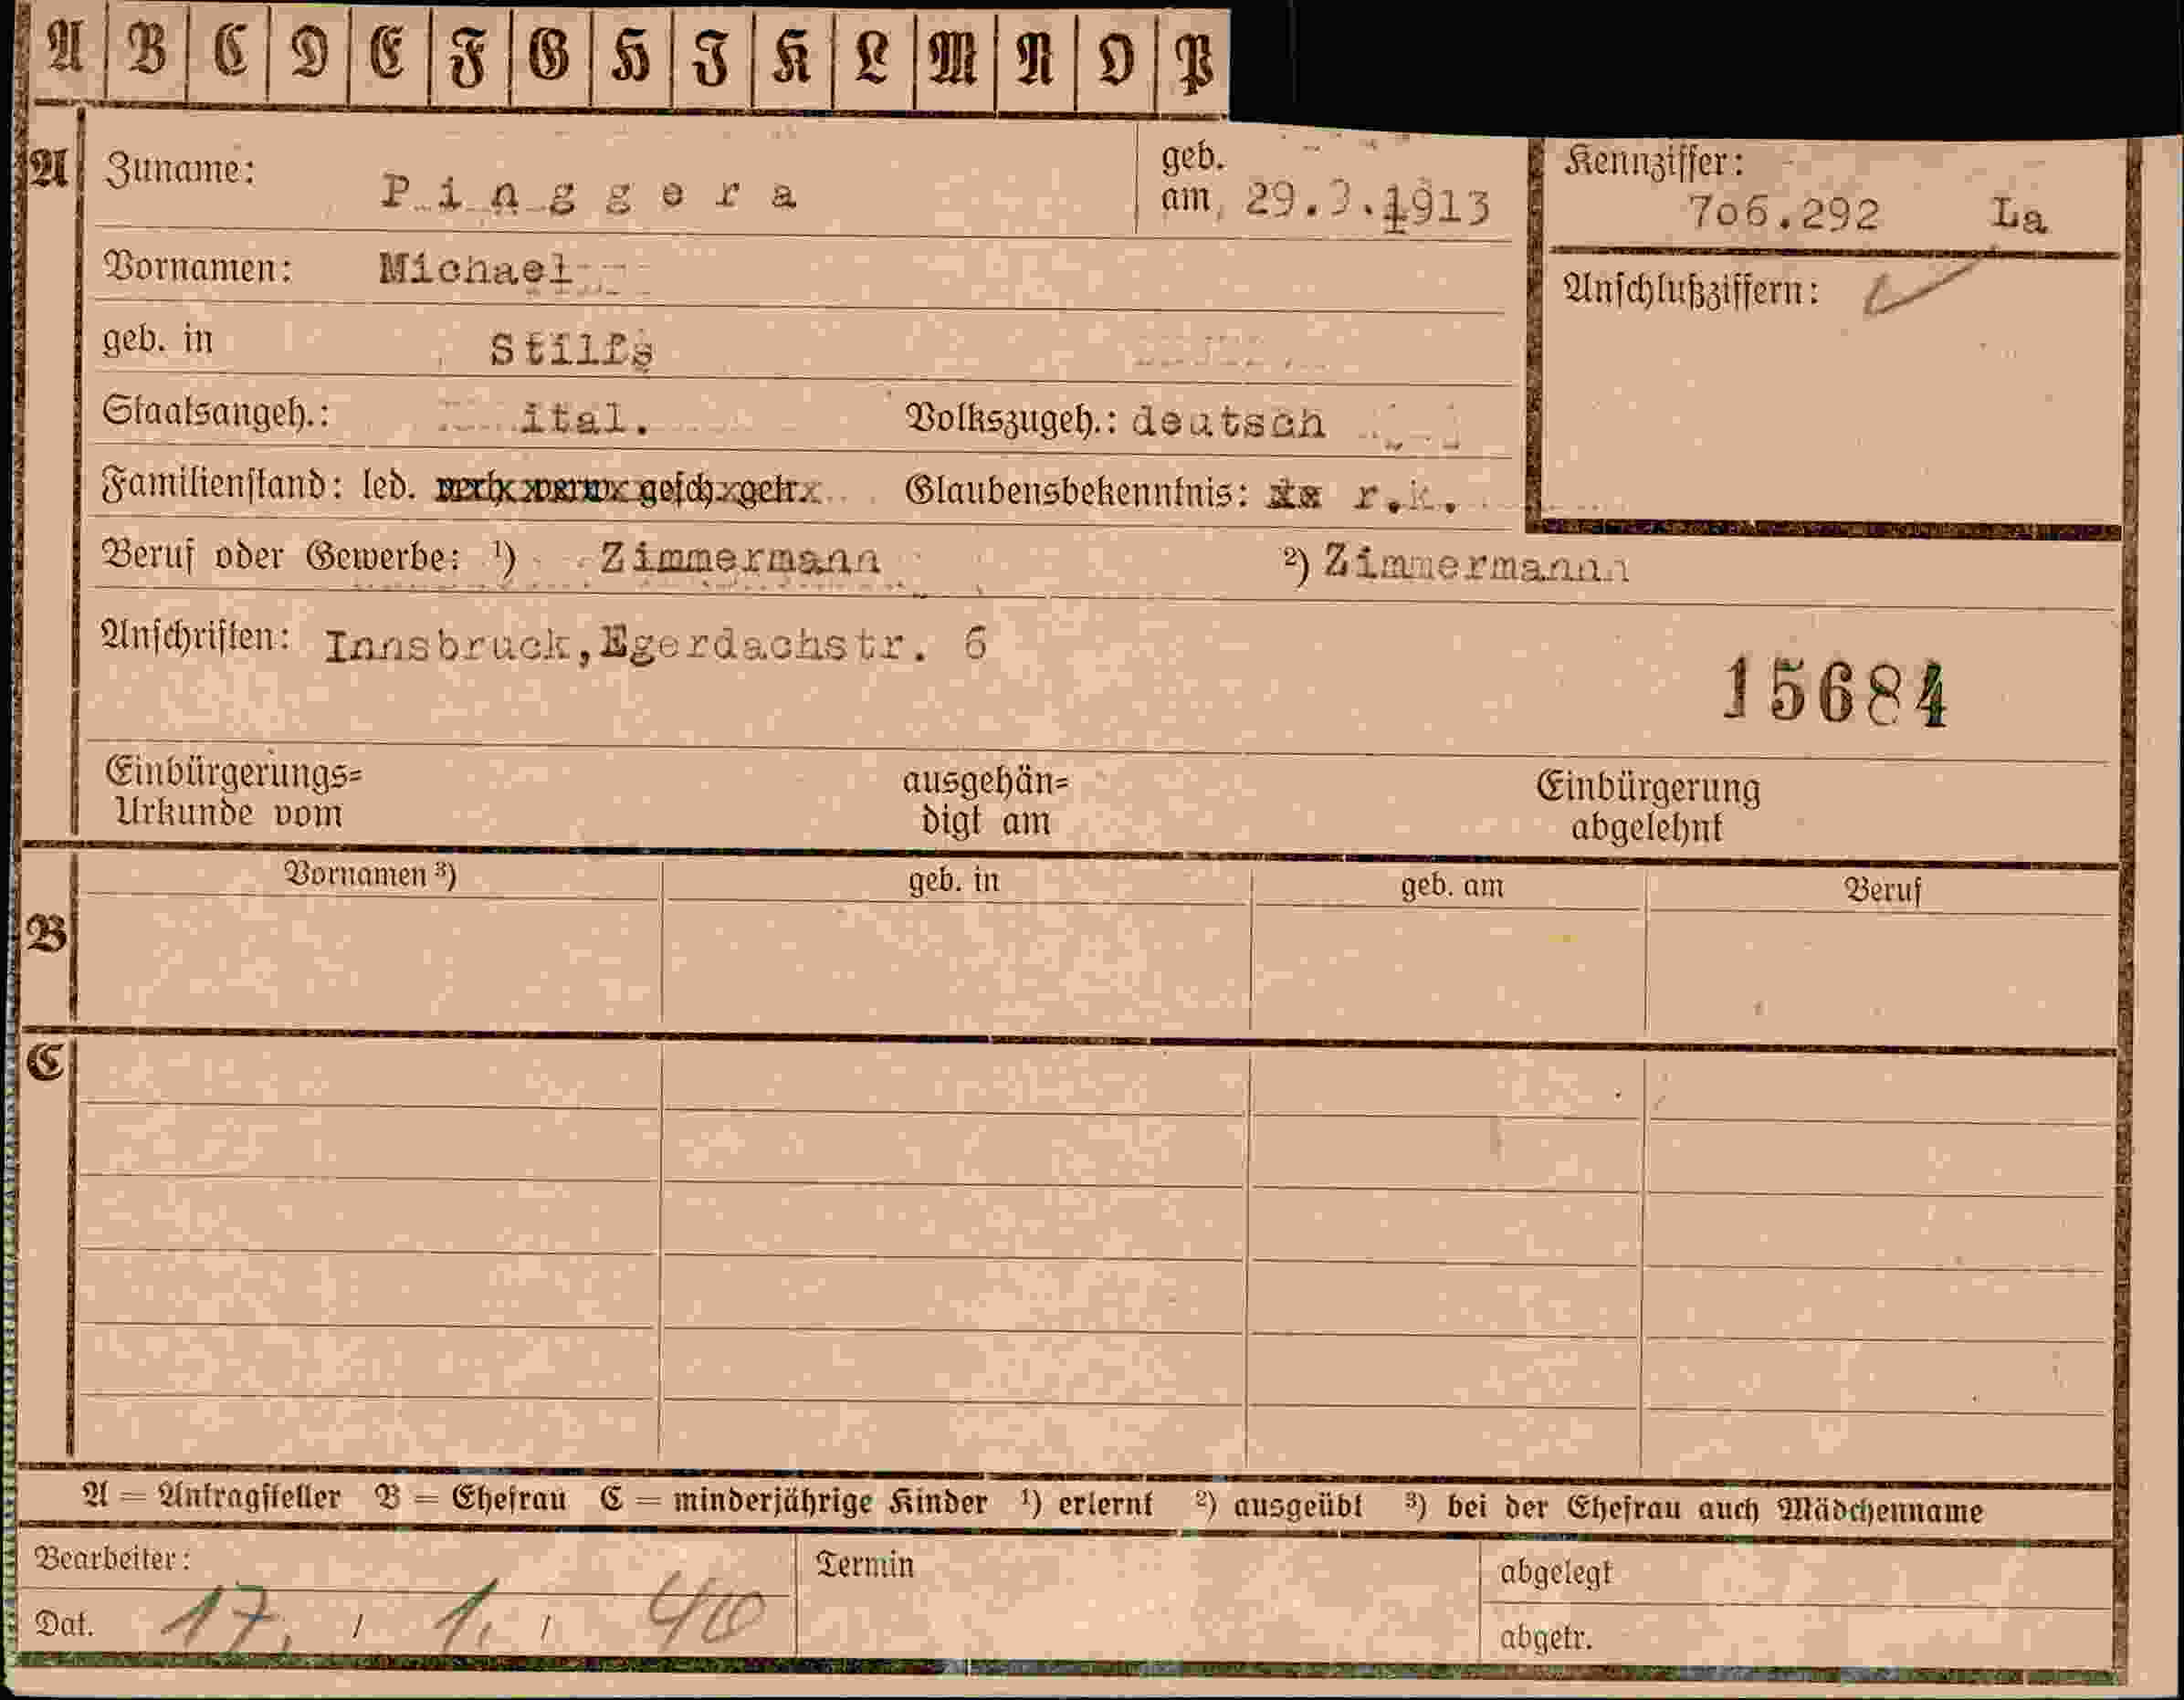 A B C D E F G H I K L M N O P
A Zuname: Pinggera geb. am 29.9.1913 Kennziffer: 706.292 La
Vornamen: Michael Anschlußziffern:
geb. in Stilfs
Staatsangeh.: ital. Volkszugeh.: deutsch
Familienstand: led. verh. verw. gesch. getr. Glaubensbekenntnis: r.k.
Beruf oder Gewerbe: ¹) Zimmermann ²) Zimmermannn
Anschriften: Innsbruck,Egerdachstr. 6
15684
Einbürgerungs= ausgehän= Einbürgerung
Urkunde vom digt am abgelehnt
Vornamen ³) geb. in geb. am Beruf
B
C
A = Antragsteller B = Ehefrau C = minderjährige Kinder ¹) erlernt ²) ausgeübt ³) bei der Ehefrau auch Mädchenname
Bearbeiter: Termin abgelegt
Dat. 17. / 1. / 40 abgetr.